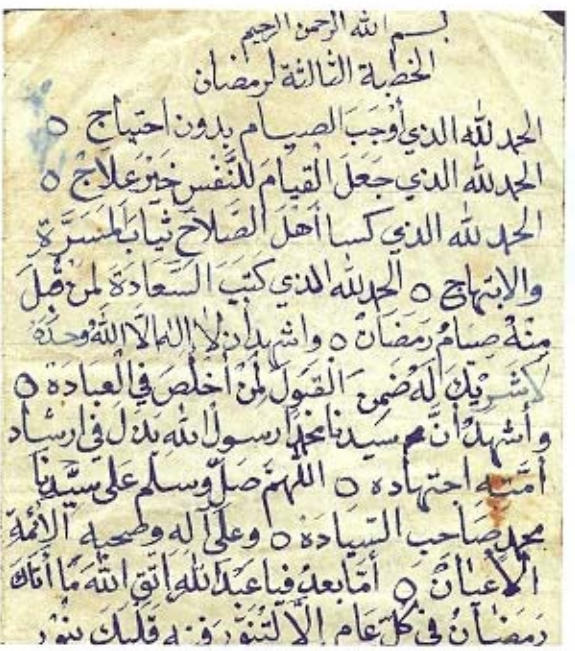 بسم الله الرحمن الرحيم
الخطبة الثالثة لرمضان
الحمد لله الذي أَوْجَبَ الصيام بدون احتياج ٥
الحمد لله الذي جَعَلَ القِيامَ للنَّفْسِ خَيْرَ عِلاجْ ٥
الحمد لله الذي كسا أَهلَ الصَّلاحِ ثيابَ المَسَرَّةِ
والابتهاج ٥ الحمد لله الذي كتبَ السَّعادَةَ لمنْ قُبِلَ
مِنْهُ صيامُ رمَضَانْ ٥ واشهد ان لا إله الا اللهُ وحدَهُ
لا شريكَ لهُ ضمِنَ القبولَ لِمَنْ أخلَصَ في العبادَه ٥
وأشهدُ أنَّ سيدنا محمدًا رسولُ اللهِ بَذَلَ في ارشاد
أمَّتِه اجتهادَه ٥ اللَّهمَّ صَلِّ وسلم على سيِّدِنا
محمدٍ صَاحبِ السِّيادَهْ ٥ وعَلَى آله وصحبِه الأئمَّةِ
الأعيانْ ٥ أمَّا بعدُ فيا عبدَ اللهِ اتقِ اللهَ مَا أتاكَ
رمضانُ في كلِّ عام إلّا لتُنَوِّرَ فيهِ قَلْبَكَ بنُور